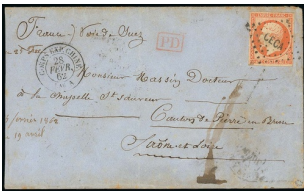 France / Voie de Suez
PD
CORPS EXP. CHINE
28
FEVR.
62
Monsieur Massin Docteur
à la Chapelle St Sauveur
Canton de Pierre en Bresse
Saône et Loire
février 1862
19 avril